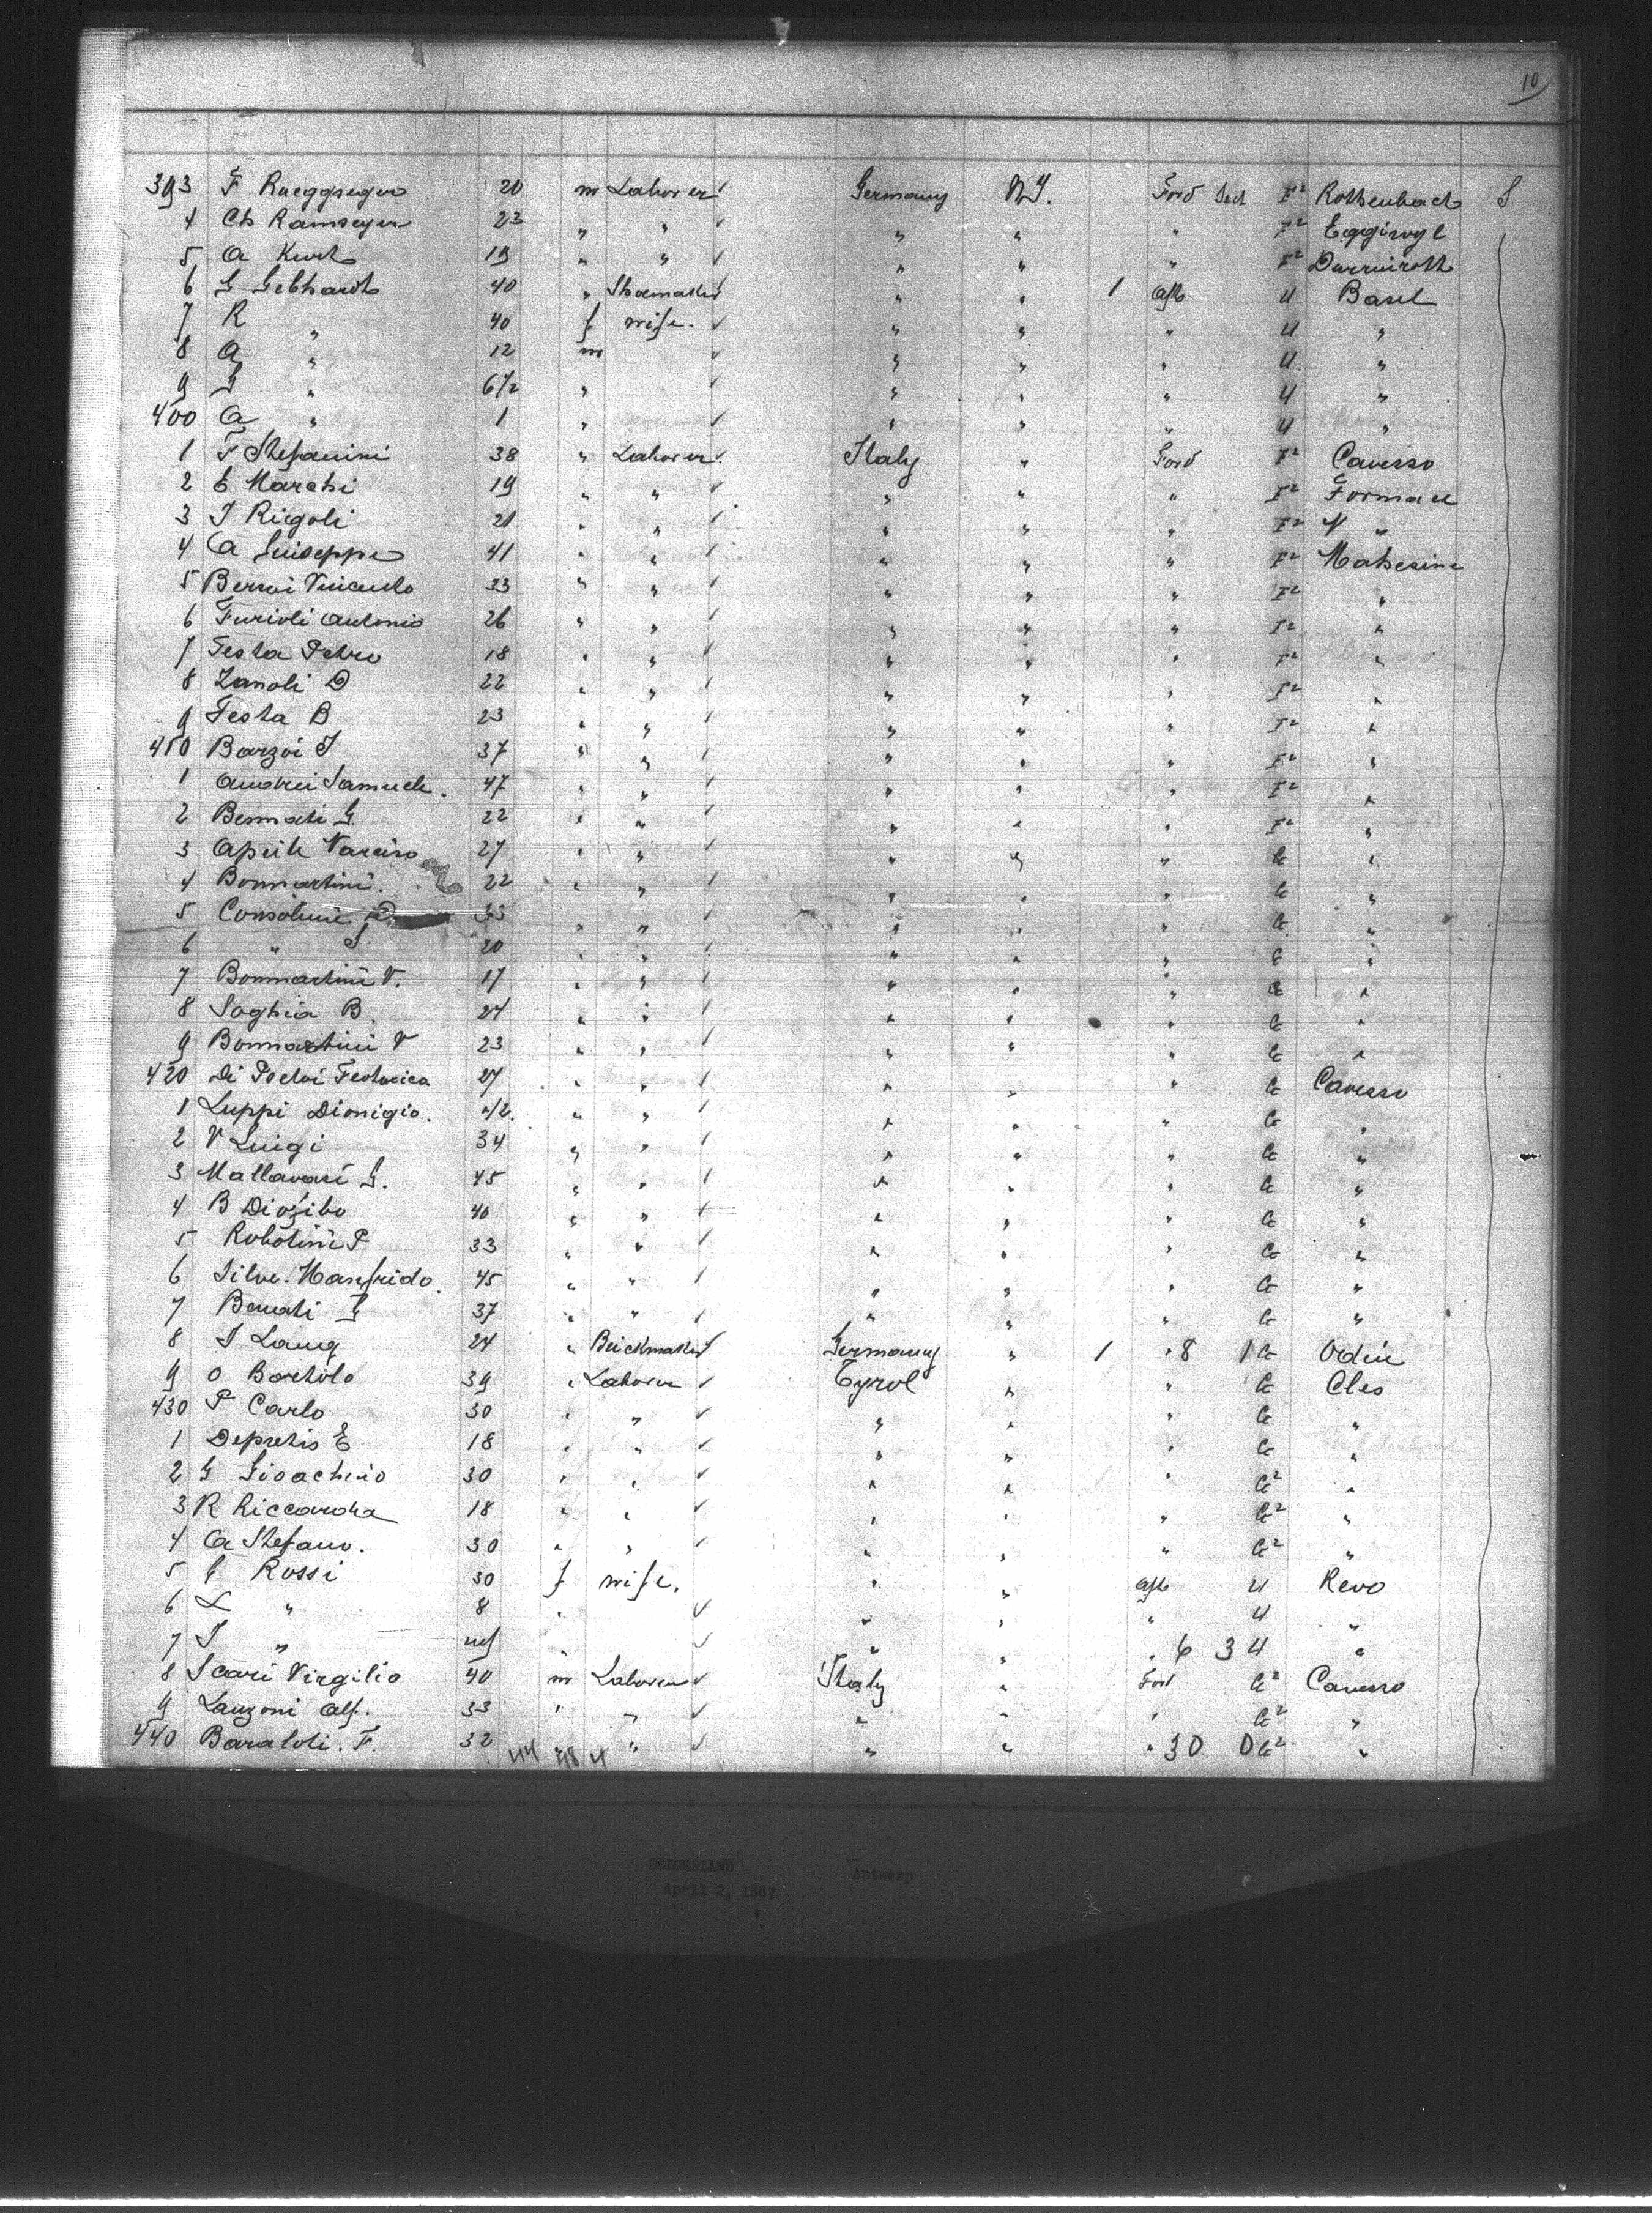 10
393 F Rueggsegger 20 m Laborer Germany N.Y. Ford Deck F² Rothenbach S
4 Ch Ramseyer 23 " " " " " F² Eggiwyl
5 A Kurt 19 " " " " " F²
6 G Gebhardt 40 " Shoemaker " " 1 Aft U Basel
7 R " 40 f wife. " " " U "
8 A " 12 m " " " U "
9 " 6 1/2 " " " " U "
400 A " 1 " " " " U "
1 F Stefanini 38 " Laborer Italy " Ford F² Cavesso
2 E Marchi 19 " " " " " F²
3 J Rigoli 21 " " " " " F² "
4 A Guiseppe 41 " " " " " F²
5 33 " " " " " F² "
6 Furioli Antonio 26 " " " " " F² "
7 Testa Petro 18 " " " " " F² "
8 Zanoli D 22 " " " " " F² "
9 Testa B 23 " " " " " F² "
410 Barzoi J 37 " " " " " F² "
1 Andrei Samuele. 47 " " " " " F² "
2 Bennati G. 22 " " " " " F² "
3 Aprile Narciso 27 " " " " " C "
4 Bonmartini. 22 " " " " " C "
5 Consolini " " " " " C "
6 " J 20 " " " " " C "
7 Bonmartini V. 17 " " " " " C "
8 Soghia B. 24 " " " " " C "
9 Bonmartini V 23 " " " " " C "
420 Di Federica 27 " " " " " C Cavesso
1 Luppi Dionigio. 42. " " " " " C "
2 V Luigi 34 " " " " " C "
3 Mallavasi G. 45 " " " " " C "
4 B 40 " " " " " C "
5 Robotini P 33 " " " " " C "
6 Silve. Manfrido. 45 " " " " " C "
7 Benati G 37 " " " " " C "
8 J Lang 24 " Brickmaker Germany " 1 " 8 1 C
9 O Bortolo 39 " Laborer Tyrol " " C Cles
430 P Carlo 30 " " " " " C "
1 Depretis E 18 " " " " " C "
2 G Gioachino 30 " " " " " C² "
3 R Riccarda 18 " " " " " C² "
4 A Stefano. 30 " " " " " C² "
5 G Rossi 30 f wife. " " Aft U Revo
6 L " 8 " " " " U "
7 J " inf " " " " 6 3 U "
8 Scari Virgilio 40 m Laborer Italy " Ford C² Cavesso
9 Lanzoni Alf. 33 " " " " " C² "
440 Baraldi. F. 32 " " " " " 30 0 C² "
44 48 4
BELGENLAND Antwerp
April 2, 1887